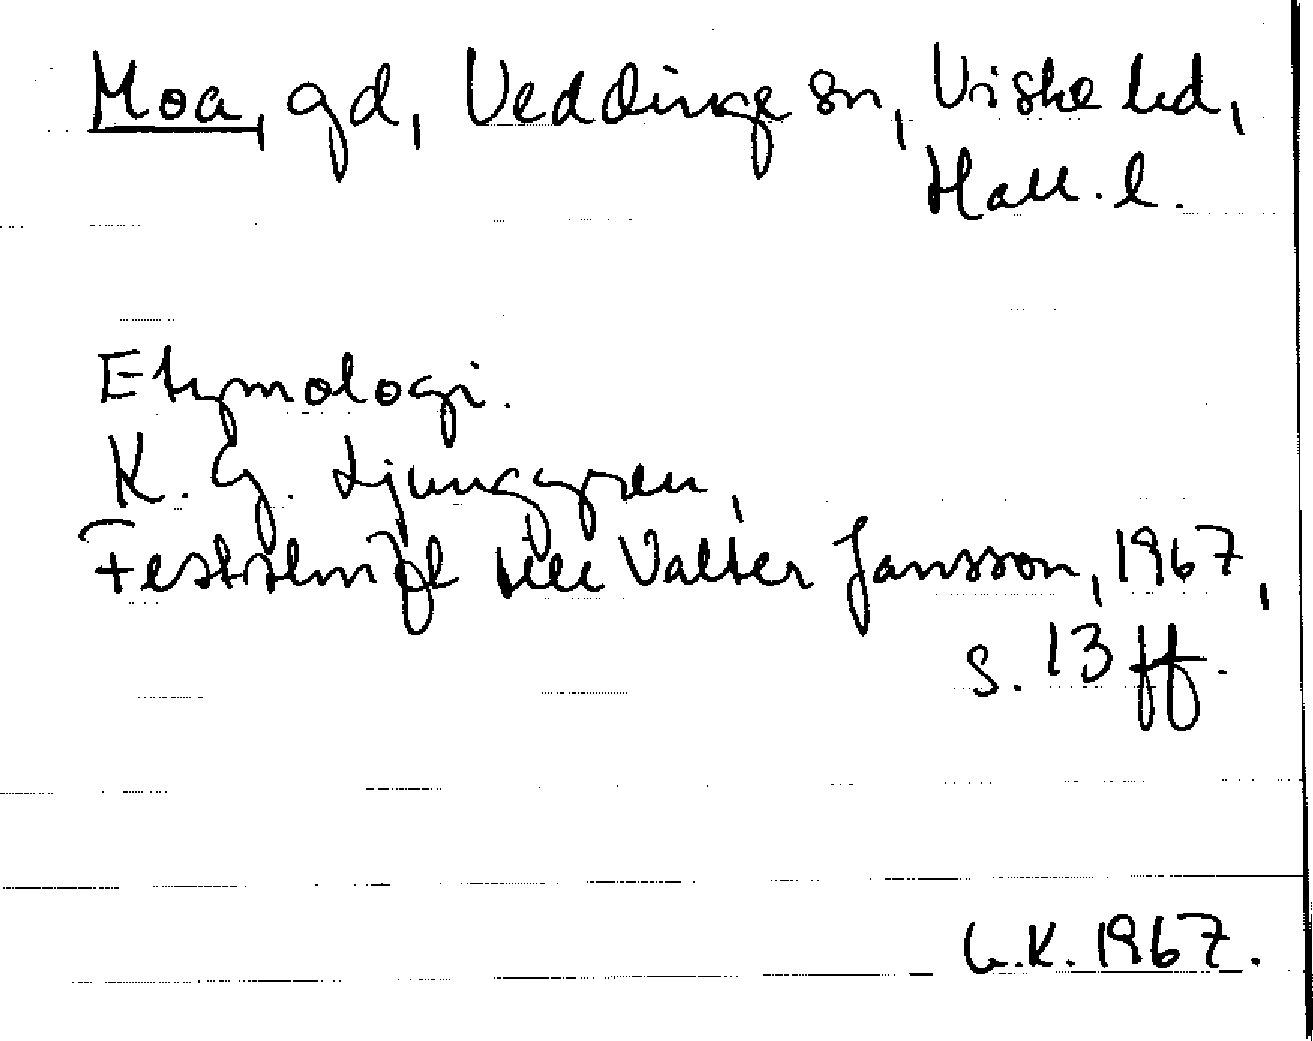 Moa, gd, Veddinge sn, Viske hd,
Hall. l.
Etymologi.
K. G. Ljunggren,
Festskrift till Valter Jansson, 1967,
s. 13 ff.
G.K. 1967.